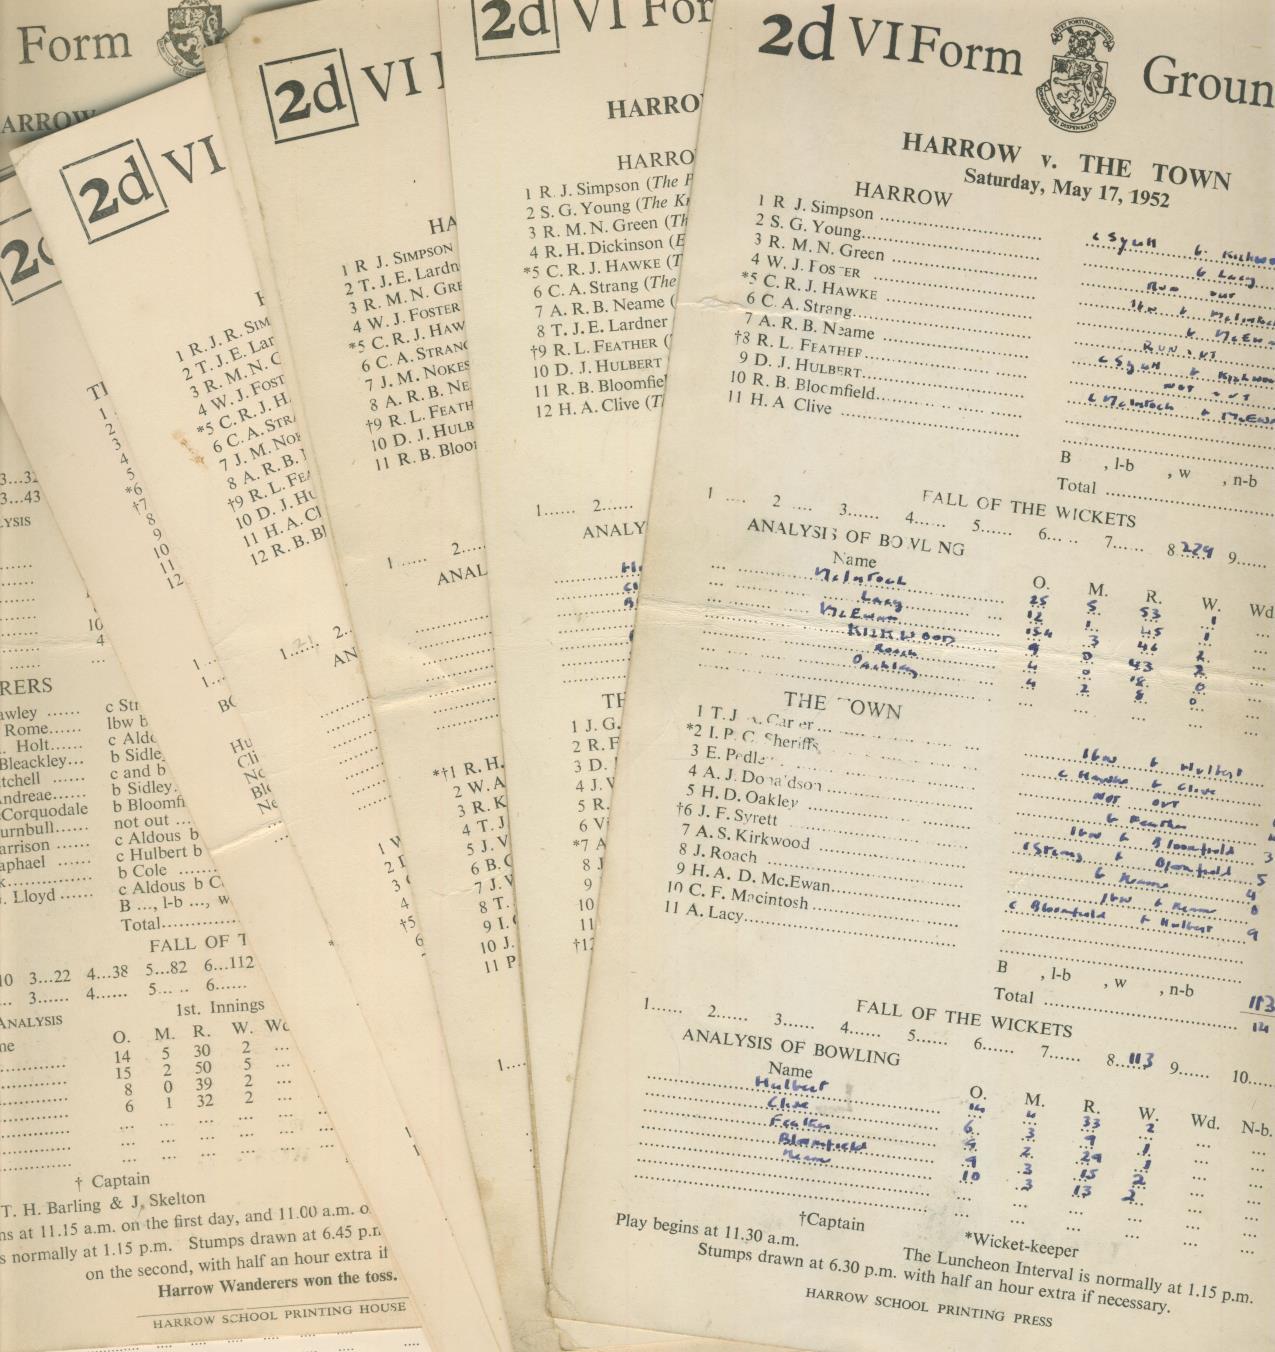 2d VI Form Groun
HARROW v. THE TOWN
Saturday, May 17, 1952
HARROW
1 R J. Simpson c Syrett b Kirkwo
2 S. G. Young b Lacy
3 R. M. N. Green Run out
4 W. J. FOSTER lbw b McIntosh
*5 C. R. J. HAWKE b McEwan
6 C. A. Strang RUN OUT
7 A. R. B. Neame c Syrett b Kirkwood
†8 R. L. FEATHER not out
9 D. J. HULBERT c McIntosh b McEwan
10 R. B. Bloomfield
11 H. A Clive
B , l-b , w , n-b
Total
FALL OF THE WICKETS
1 2 3 4 5 6 7 8 229 9
ANALYSIS OF BOWLING
Name O. M. R. W. Wd
McIntosh 25 5 53 1
Lacy 12 1 45 1
McEwan 15.4 3 46 2
KIRKWOOD 9 0 43 2
Roach 4 0 18 0
Oackley 4 2 8 0
THE TOWN
1 T. J. Carter lbw b Hulbert
*2 I. P. C. Sheriffs c Hawke b Clive
3 E. Pedle not out
4 A. J. Donaldson b Feather
5 H. D. Oakley lbw b Bloomfield 3
†6 J. F. Syrett c Strang b Bloomfield 5
7 A. S. Kirkwood b Neame 4
8 J. Roach lbw b Neame 0
9 H. A. D. Mc.Ewan c Bloomfield b Hulbert 9
10 C. F. Macintosh
11 A. Lacy
B , l-b , w , n-b
Total 113
14
FALL OF THE WICKETS
1 2 3 4 5 6 7 8 113 9 10
ANALYSIS OF BOWLING
Name O. M. R. W. Wd. N-b.
Hulbert 14 4 33 2
Clive 6 3 9 1
Feather 9 2 29 1
Bloomfield 9 3 15 2
Neame 10 3 13 2
†Captain *Wicket-keeper
Play begins at 11.30 a.m. The Luncheon Interval is normally at 1.15 p.m.
Stumps drawn at 6.30 p.m. with half an hour extra if necessary.
HARROW SCHOOL PRINTING PRESS
2d VI For
HARRO
HARRO
1 R. J. Simpson (The P
2 S. G. Young (The Kn
3 R. M. N. Green (Th
4 R. H. Dickinson (E
*5 C. R. J. HAWKE (T
6 C. A. Strang (The
7 A. R. B. Neame (
8 T. J. E. Lardner
†9 R. L. FEATHER (
10 D. J. HULBERT
11 R. B. Bloomfie
12 H. A. Clive (T
1 2
ANALY
TH
1 J. G.
2 R. F
3 D.
4 J. V
5 R.
6 V
*7 A
8 J
9
10
11
†12
1
2d VI
HA
1 R J. SIMPSON
2 T. J. E. Lardn
3 R. M. N. GRE
4 W. J. FOSTER
*5 C. R. J. HAW
6 C. A. STRANG
7 J. M. NOKES
8 A. R. B. NE
†9 R. L. FEATH
10 D. J. HULB
11 R. B. Bloo
1 2
ANAL
*†1 R. H.
2 W. A
3 R. K
4 T. J
5 J. V
6 B. C
7 J. V
8 T.
9 I.
10 J.
11 P
2d VI
1 R. J. R. SIM
2 T. J. E. Lar
3 R. M. N. G
4 W. J. FOST
*5 C. R. J. H
6 C. A. STRA
7 J. M. NOK
8 A. R. B. N
†9 R. L. FEA
10 D. J. HU
11 H. A. Cl
12 R. B. Bl
1 21 2
AN
2d
TH
1
2
3
4
5
*6
†7
8
9
10
11
12
BO
Hu
Cli
Form
ARROW
3...43
LYSIS
10
4
RERS
awley c Str
Rome lbw b
Holt c Aldo
Bleackley b Sidle
tchell c and b
Andreae b Sidley
cCorquodale b Bloomfi
urnbull not out
arrison c Aldous b
aphael c Hulbert b
b Cole
Lloyd c Aldous b C
B ..., l-b ..., w
Total
FALL OF T
10 3...22 4...38 5...82 6...112
3 4 5 6
ANALYSIS 1st. Innings
me O. M. R. W. Wd
14 5 30 2
15 2 50 5
8 0 39 2
6 1 32 2
† Captain
T. H. Barling & J. Skelton
ns at 11.15 a.m. on the first day, and 11.00 a.m. o
s normally at 1.15 p.m. Stumps drawn at 6.45 p.m
on the second, with half an hour extra if
Harrow Wanderers won the toss.
HARROW SCHOOL PRINTING HOUSE